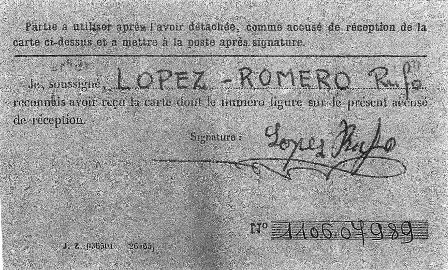 Partie a utiliser après l'avoir détachée, comme accusé de réception de la
carte ci-dessus et a mettre à la poste après signature.
Je, soussigné, LOPEZ - ROMERO Rufo
reconnais avoir reçu la carte dont le numero figure sur le present accusé
de réception.
Signature :
Lopez Rufo
Nº 1106.07989
J. Z.